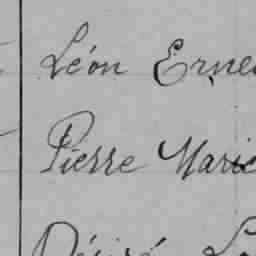 Léon Erne
Pierre Marie
Désiré L